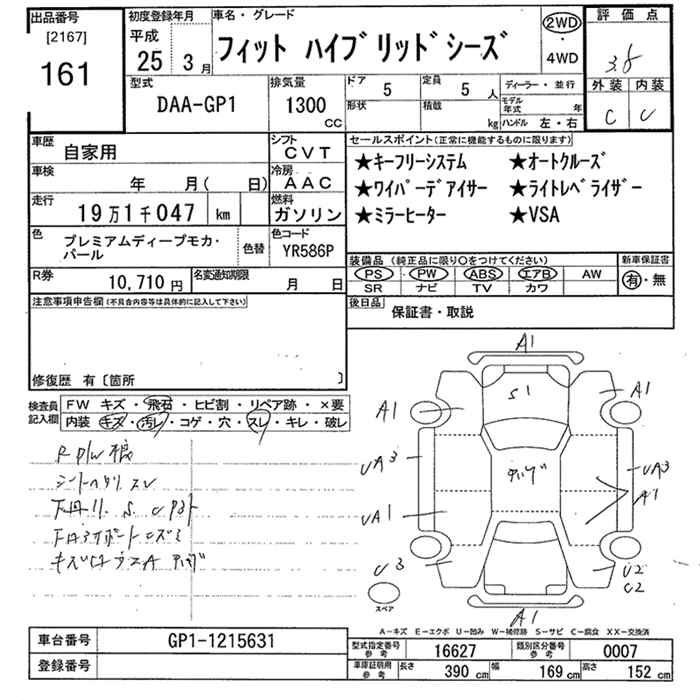 出品番号
[2167]
161
初度登録年月
平成
25 3月
車名・グレード
フィット ハイブリッドシーズ
2WD
・
4WD
評価点
3.5
外装 内装
C C
型式
DAA-GP1
排気量
1300
CC
ドア 5
形状
定員 5 人
積載 kg
ディーラー・並行
モデル年式 年
ハンドル 左・右
車歴 自家用
シフト CVT
車検 年 月( 日)
冷房 AAC
走行 19万1千047 km
燃料 ガソリン
色 プレミアムディープモカ・パール
色替
色コード YR586P
R券 10,710円
名変通知期限 月 日
セールスポイント(正常に機能するものに限ります)
★キーフリーシステム ★オートクルーズ
★ワイパーデアイサー ★ライトレベライザー
★ミラーヒーター ★VSA
装備品(純正品に限り○をつけてください)
PS PW ABS エアB AW
SR ナビ TV カワ
新車保証書
有・無
後日品 保証書・取説
注意事項申告欄(不具合内容等は具体的に記入して下さい)
修復歴 有〔箇所 〕
検査員記入欄
FW キズ・飛石・ヒビ割・リペア跡・×要
内装 キズ・汚レ・コゲ・穴・スレ・キレ・破レ
A1
S1
A1
A1
UA3
UA3
A1
UA1
U3
U2
C2
A1
スペア
A-キズ E-エクボ U-凹み W-補修跡 S-サビ C-腐食 XX-交換済
車台番号 GP1-1215631
登録番号
型式指定番号参考 16627
類別区分番号参考 0007
車庫証明用参考 長さ 390 cm 幅 169 cm 高さ 152 cm